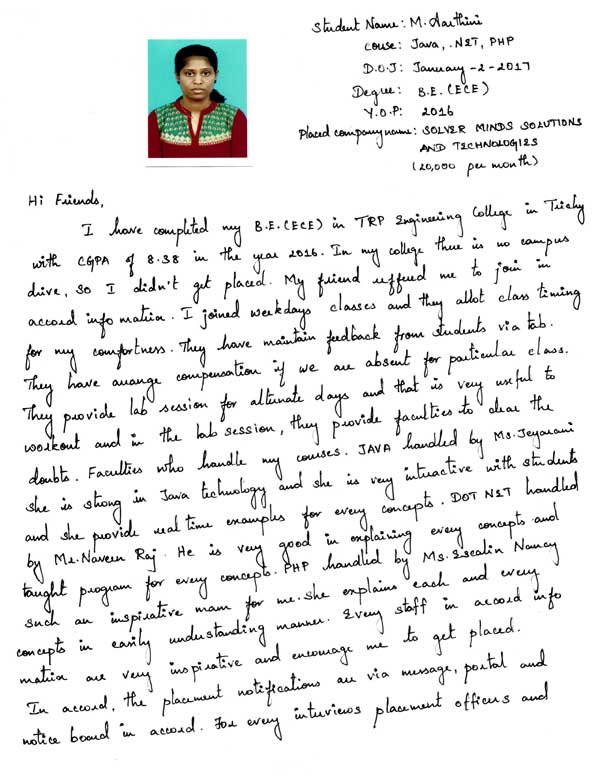 Student Name: M. Aarthini
Couse: Java, .NET, PHP
D.O.J: January-2-2017
Degree: B.E.(ECE)
Y.O.P: 2016
Placed company name: SOLVER MINDS SOLUTIONS
AND TECHNOLOGIES
(20,000 per month)
Hi Friends,
I have completed my B.E.(ECE) in TRP Engineering College in Trichy
with CGPA of 8.38 in the year 2016. In my college there is no campus
drive, so I didn't get placed. My friend reffered me to join in
accord info matrix. I joined weekdays classes and they allot class timing
for my comfortness. They have maintain feedback from students via tab.
They have arrange compensation if we are absent for particular class.
They provide lab session for alternate days and that is very useful to
workout and in the lab session, they provide faculties to clear the
doubts. Faculties who handle my courses. JAVA handled by Ms. Jeyarani
she is strong in Java technology and she is very interactive with students
and she provide real time examples for every concepts. DOT NET handled
by Mr. Naveen Raj. He is very good in explaining every concepts and
taught program for every concepts. PHP handled by Ms. Escalin Nancy
such an inspirative mam for me. she explains each and every
concepts in easily understanding manner. Every staff in accord info
matrix are very inspirative and encourage me to get placed.
In accord, the placement notifications are via message, portal and
notice board in accord. For every interviews placement officers and